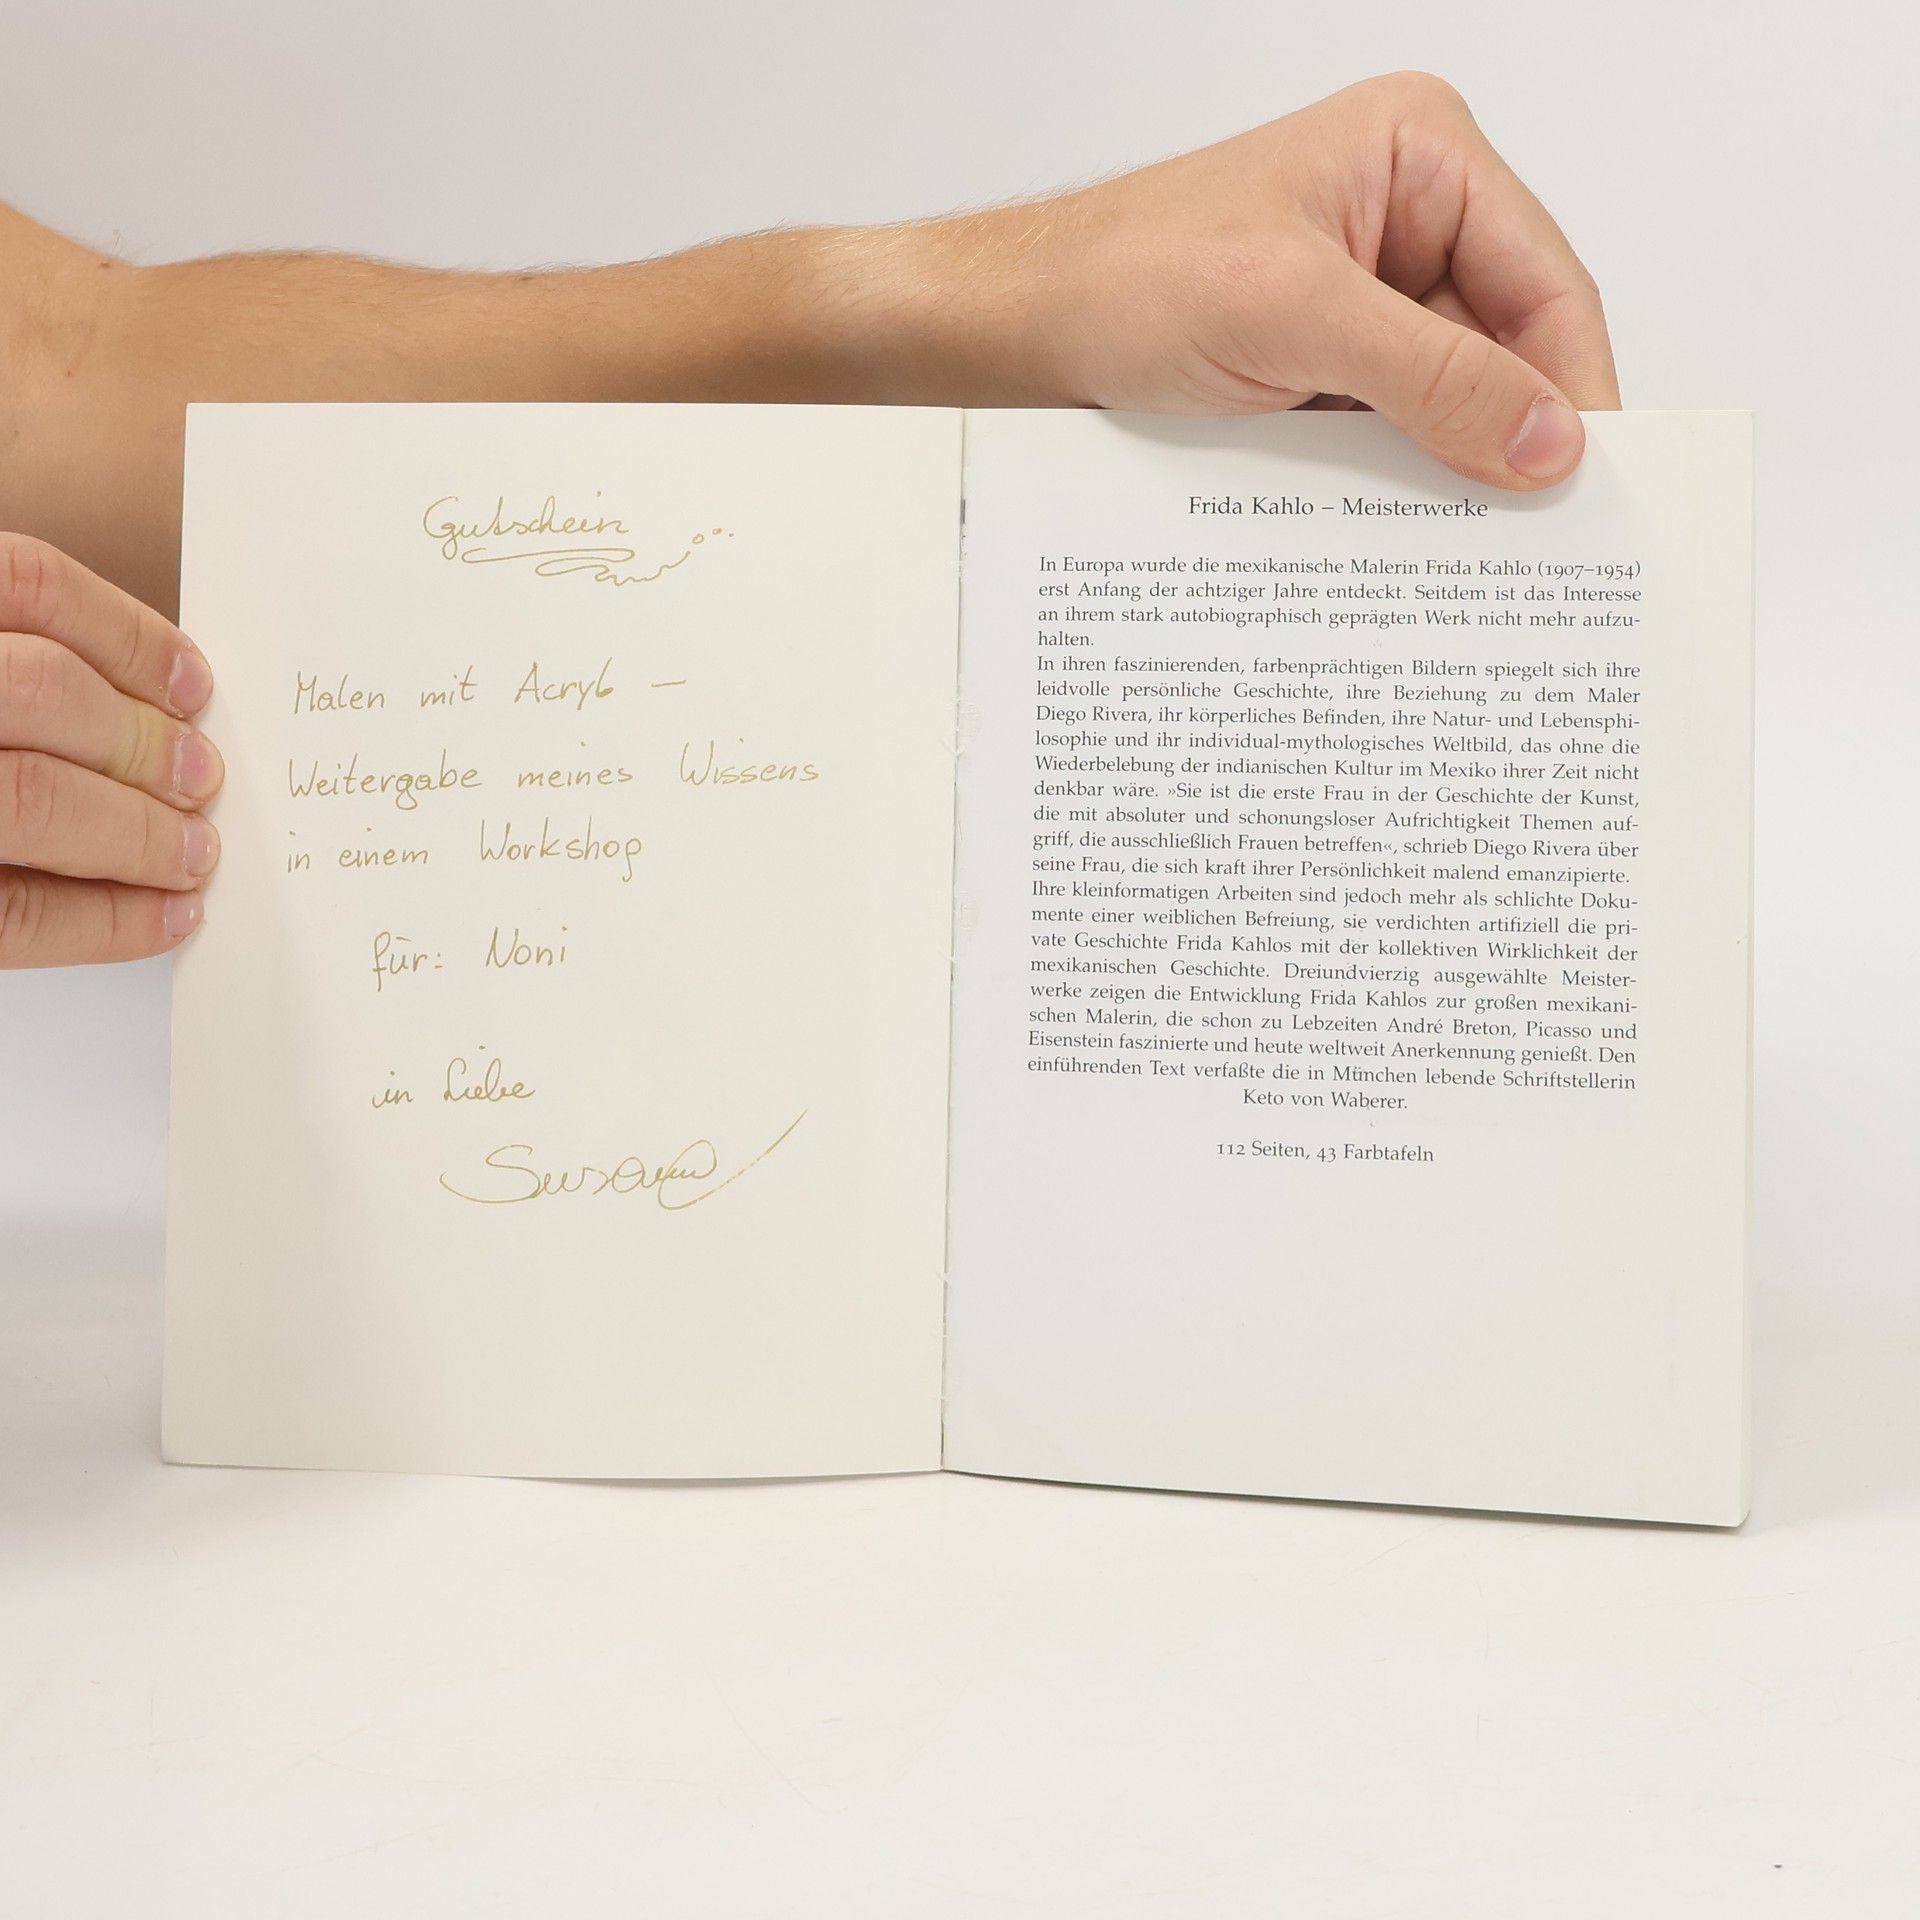 Gutschein
Malen mit Acryl –
Weitergabe meines Wissens
in einem Workshop
für: Noni
in Liebe
Frida Kahlo – Meisterwerke
In Europa wurde die mexikanische Malerin Frida Kahlo (1907–1954)
erst Anfang der achtziger Jahre entdeckt. Seitdem ist das Interesse
an ihrem stark autobiographisch geprägten Werk nicht mehr aufzu-
halten.
In ihren faszinierenden, farbenprächtigen Bildern spiegelt sich ihre
leidvolle persönliche Geschichte, ihre Beziehung zu dem Maler
Diego Rivera, ihr körperliches Befinden, ihre Natur- und Lebensphi-
losophie und ihr individual-mythologisches Weltbild, das ohne die
Wiederbelebung der indianischen Kultur im Mexiko ihrer Zeit nicht
denkbar wäre. »Sie ist die erste Frau in der Geschichte der Kunst,
die mit absoluter und schonungsloser Aufrichtigkeit Themen auf-
griff, die ausschließlich Frauen betreffen«, schrieb Diego Rivera über
seine Frau, die sich kraft ihrer Persönlichkeit malend emanzipierte.
Ihre kleinformatigen Arbeiten sind jedoch mehr als schlichte Doku-
mente einer weiblichen Befreiung, sie verdichten artifiziell die pri-
vate Geschichte Frida Kahlos mit der kollektiven Wirklichkeit der
mexikanischen Geschichte. Dreiundvierzig ausgewählte Meister-
werke zeigen die Entwicklung Frida Kahlos zur großen mexikani-
schen Malerin, die schon zu Lebzeiten André Breton, Picasso und
Eisenstein faszinierte und heute weltweit Anerkennung genießt. Den
einführenden Text verfaßte die in München lebende Schriftstellerin
Keto von Waberer.
112 Seiten, 43 Farbtafeln